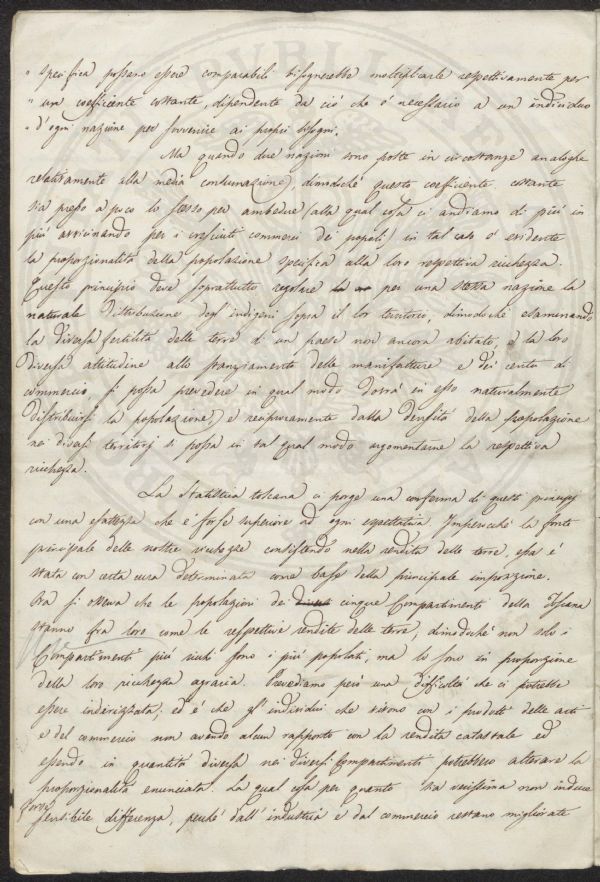 " specifica possano essere comparabili bisognerebbe moltiplicarle respettivamente per
" un coefficiente costante, dipendente da ciò che è necessario a un individuo
" d'ogni nazione per sovvenire ai propri bisogni.
Ma quando due nazioni sono poste in circostanze analoghe
relativamente alla media consumazione, dimodochè questo coefficiente costante
sia presso a poco lo stesso per ambedue (alla qual cosa ci andiamo di più in
più avvicinando per i cresciuti commerci dei popoli) in tal caso è evidente
la proporzionalità della popolazione specifica alla loro respettiva ricchezza.
Questo principio deve soprattutto regolare per una stessa nazione la
naturale distribuzione degl'indigeni sopra il lor territorio, dimodochè esaminando
la diversa fertilità delle terre di un paese non ancora abitato, e la loro
diversa attitudine allo stanziamento delle manifatture e dei centri di
commercio, si possa prevedere in qual modo dovrà in esso naturalmente
distribuirsi la popolazione, e reciprocamente dalla densità della popolazione
nei diversi territorj si possa in tal qual modo argomentarne la respettiva
ricchezza.
La Statistica toscana ci porge una conferma di questi principj
con una esattezza che è forse superiore ad ogni espettativa. Imperocchè la fonte
principale delle nostre ricchezze consistendo nella rendita delle terre, essa è
stata con certa cura determinata come base della principale imposizione.
Ora si osserva che le popolazioni dei diversi cinque Compartimenti della Toscana
stanno fra loro come le respettive rendite delle terre, dimodochè non solo i
Compartimenti più ricchi sono i più popolati, ma lo sono in proporzione
della loro ricchezza agraria. Prevediamo però una difficoltà che ci potrebbe
essere indirizzata; ed è che gl'individui che vivono con i prodotti delle arti
e del commercio non avendo alcun rapporto con la rendita catastale ed
essendo in quantità diversa nei diversi Compartimenti potrebbero alterare la
proporzionalità enunciata. La qual cosa per quanto sia verissima non induce
forse sensibile differenza, perchè dall'industria e dal commercio restano migliorate
PVBLI